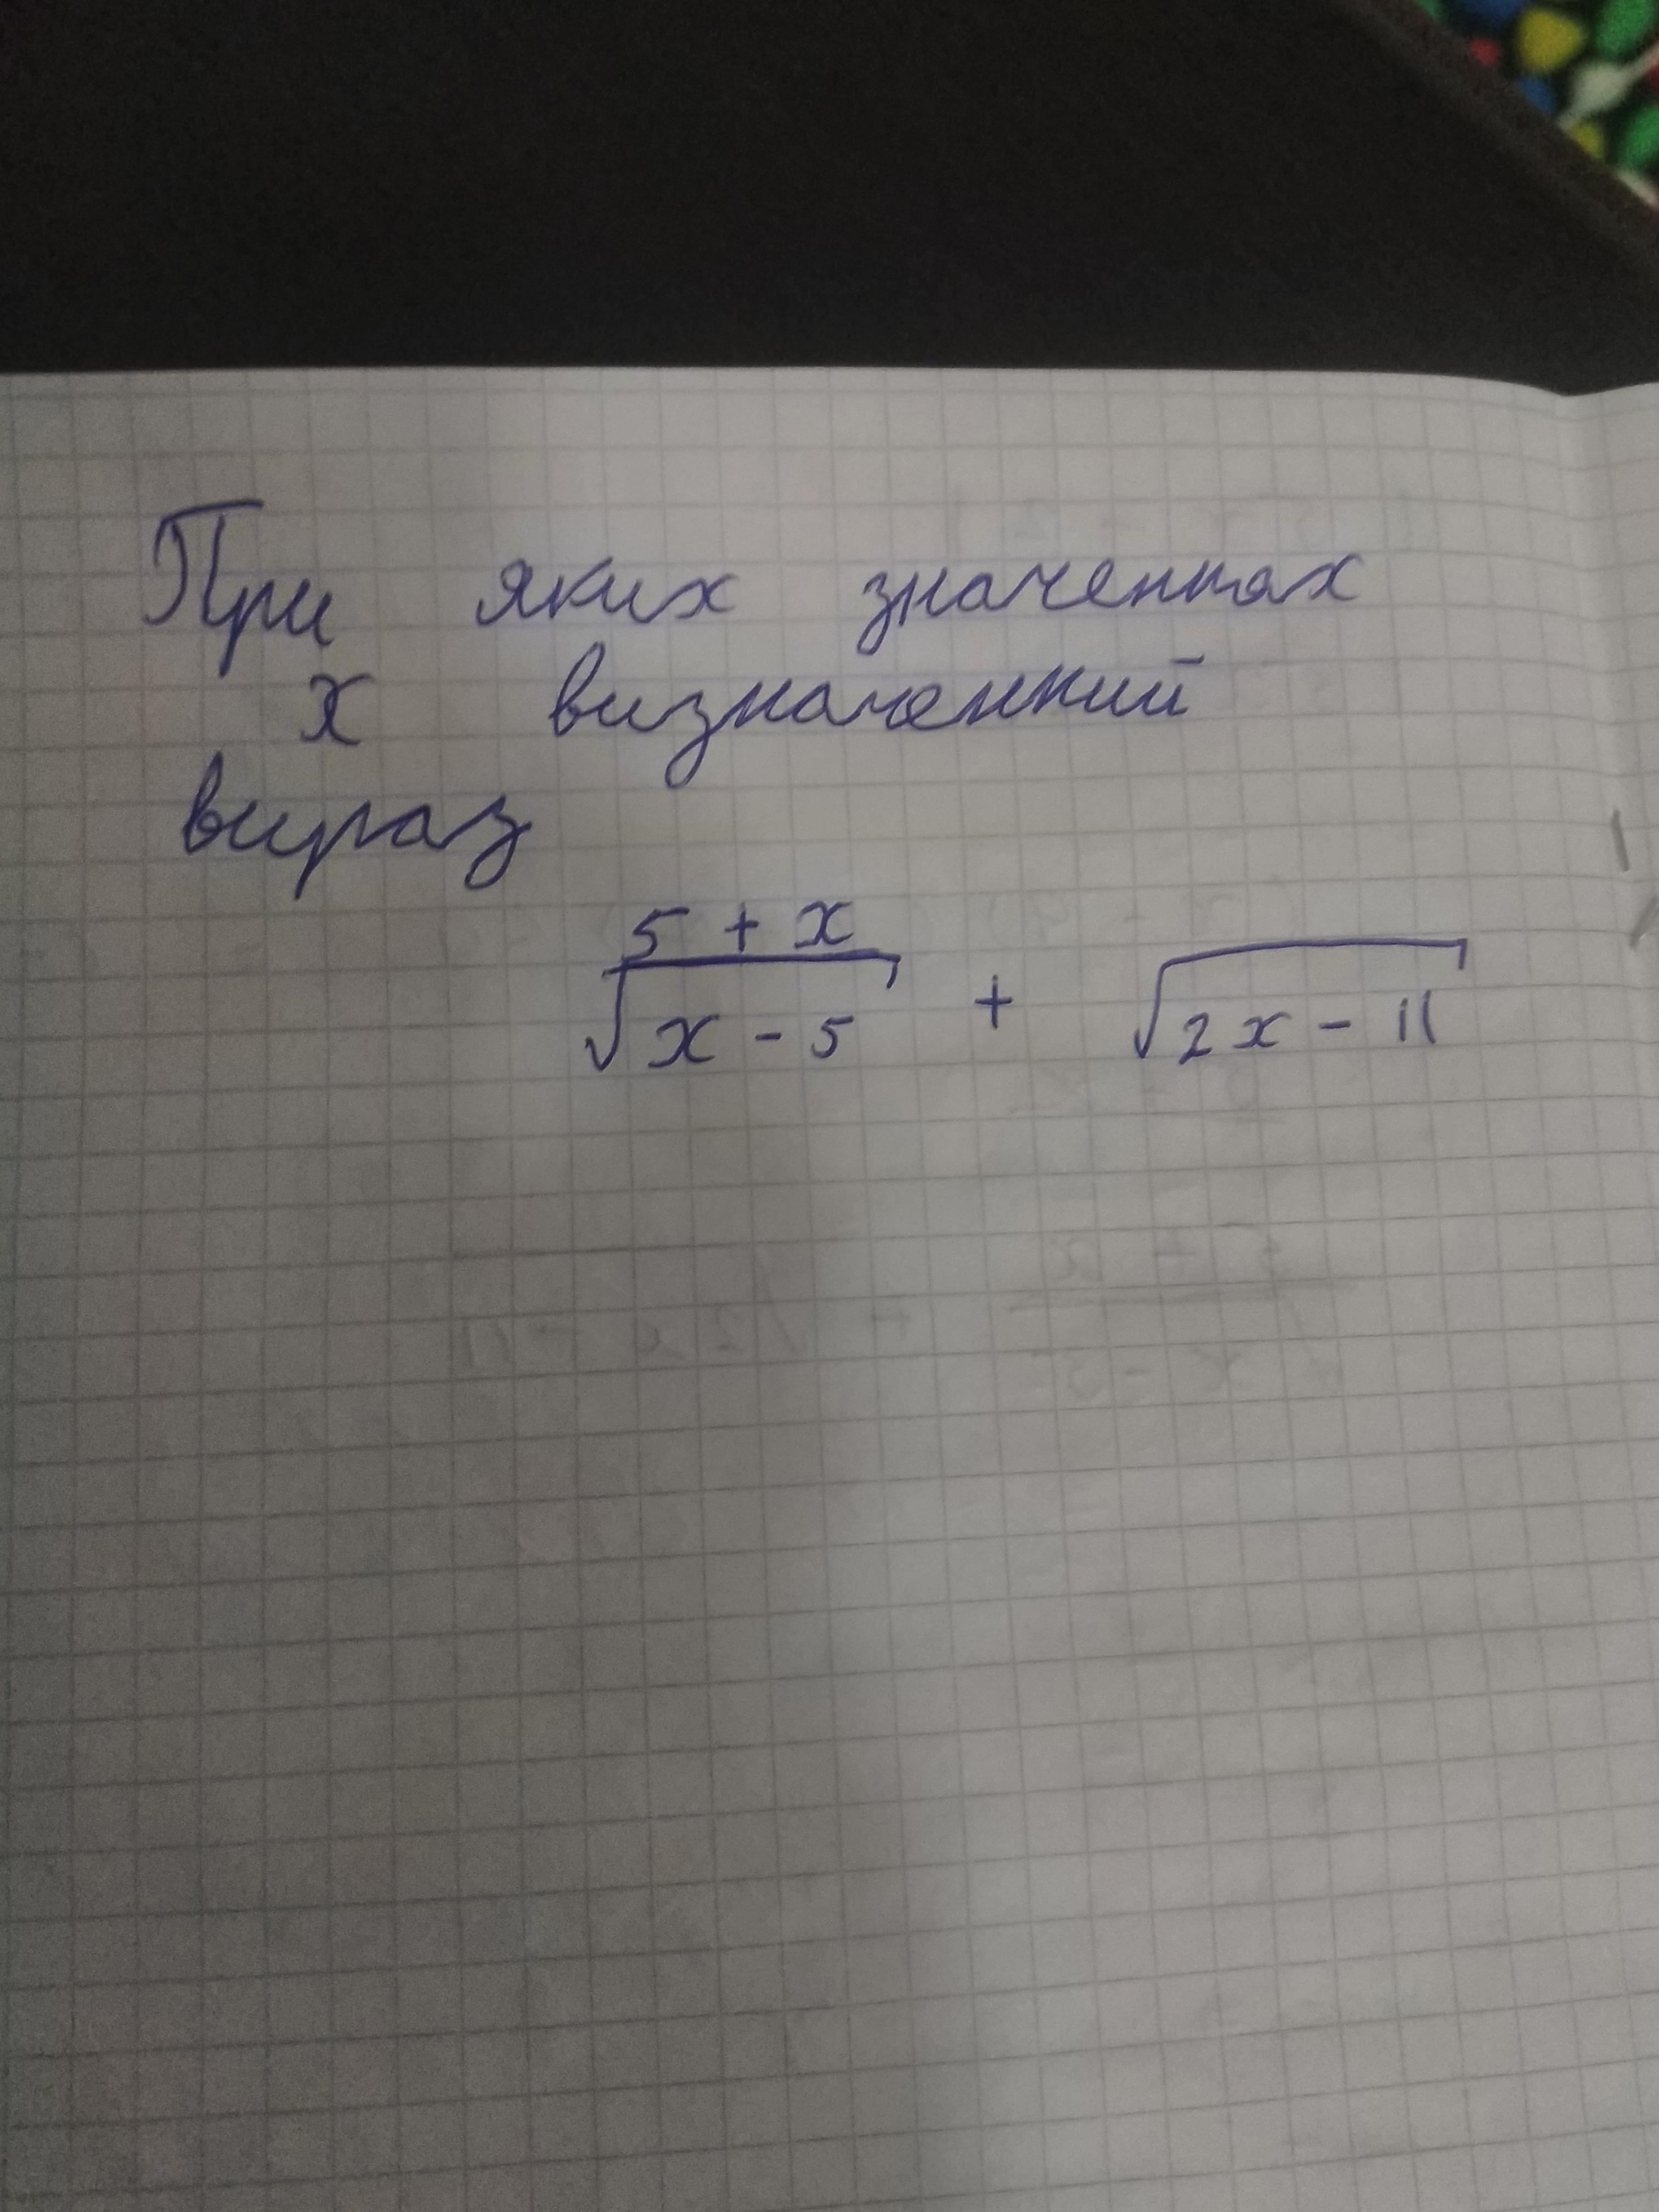 При яких значеннях
x визначений
вираз
5 + x
√x - 5 + √2x - 11